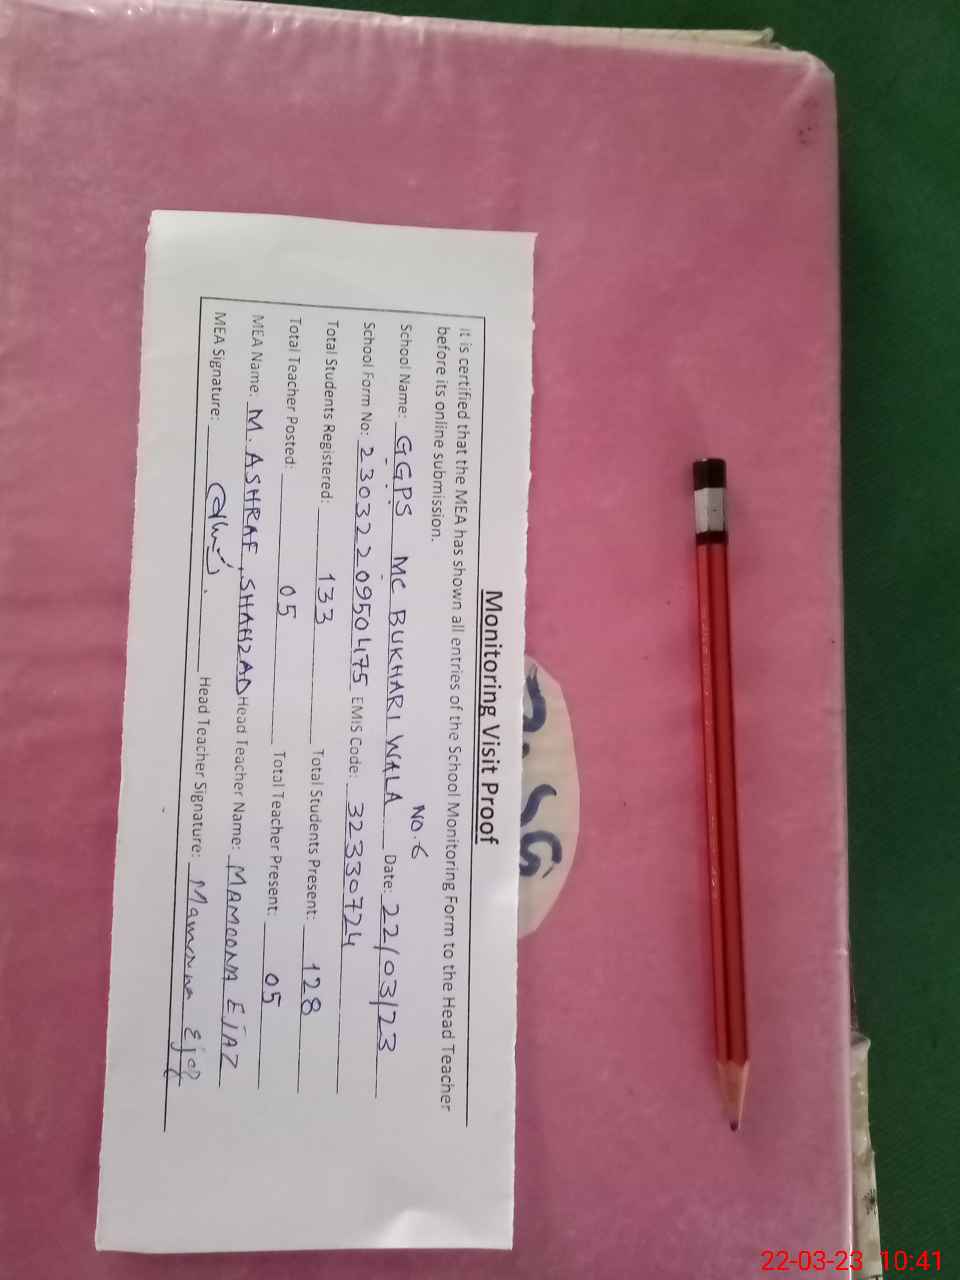 Monitoring Visit Proof
It is certified that the MEA has shown all entries of the School Monitoring Form to the Head Teacher
before its online submission.
NO.6
School Name: GGPS MC BUKHARI WALA Date: 22/03/23
School Form No: 2303220950475 EMIS Code: 32330724
Total Students Registered: 133 Total Students Present: 128
Total Teacher Posted: 05 Total Teacher Present: 05
MEA Name: M. ASHRAF, SHAHZAD Head Teacher Name: MAMOONA EJAZ
MEA Signature: Head Teacher Signature: Mamoona Ejaz
22-03-23 10:41